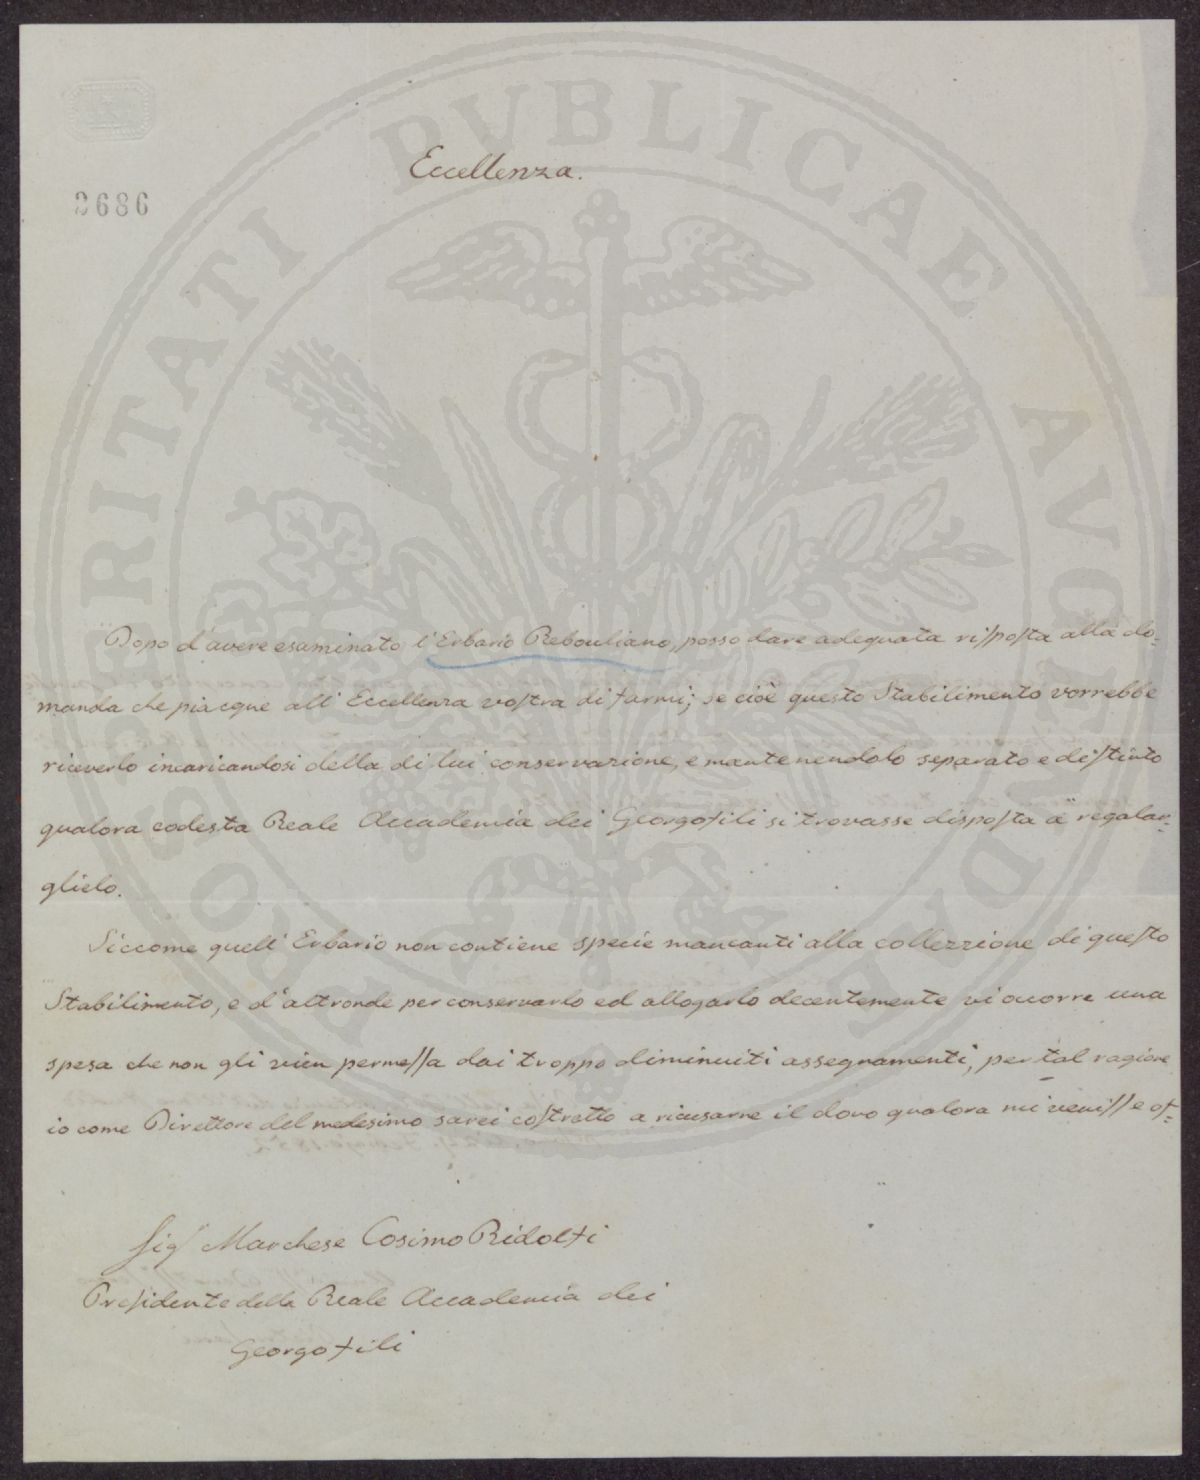 PROSPERITATI PVBLICAE AVGENDAE
Eccellenza.
2686
Dopo d'avere esaminato l'Erbario Rebouliano, posso dare adequata risposta alla do-
manda che piacque all'Eccellenza vostra di farmi; se cioè questo Stabilimento vorrebbe
riceverlo incaricandosi della di lui conservazione, e mantenendolo separato e distinto
qualora codesta Reale Accademia dei Georgofili si trovasse disposta a regalar-
glielo.
Siccome quell'Erbario non contiene specie mancanti alla collezzione di questo
Stabilimento, e d'altronde per conservarlo ed allogarlo decentemente vi occorre una
spesa che non gli vien permessa dai troppo diminuiti assegnamenti, per tal ragione
io come Direttore del medesimo sarei costretto a ricusarne il dono qualora mi venisse of-
Sigr Marchese Cosimo Ridolfi
Presidente della Reale Accademia dei
Georgofili